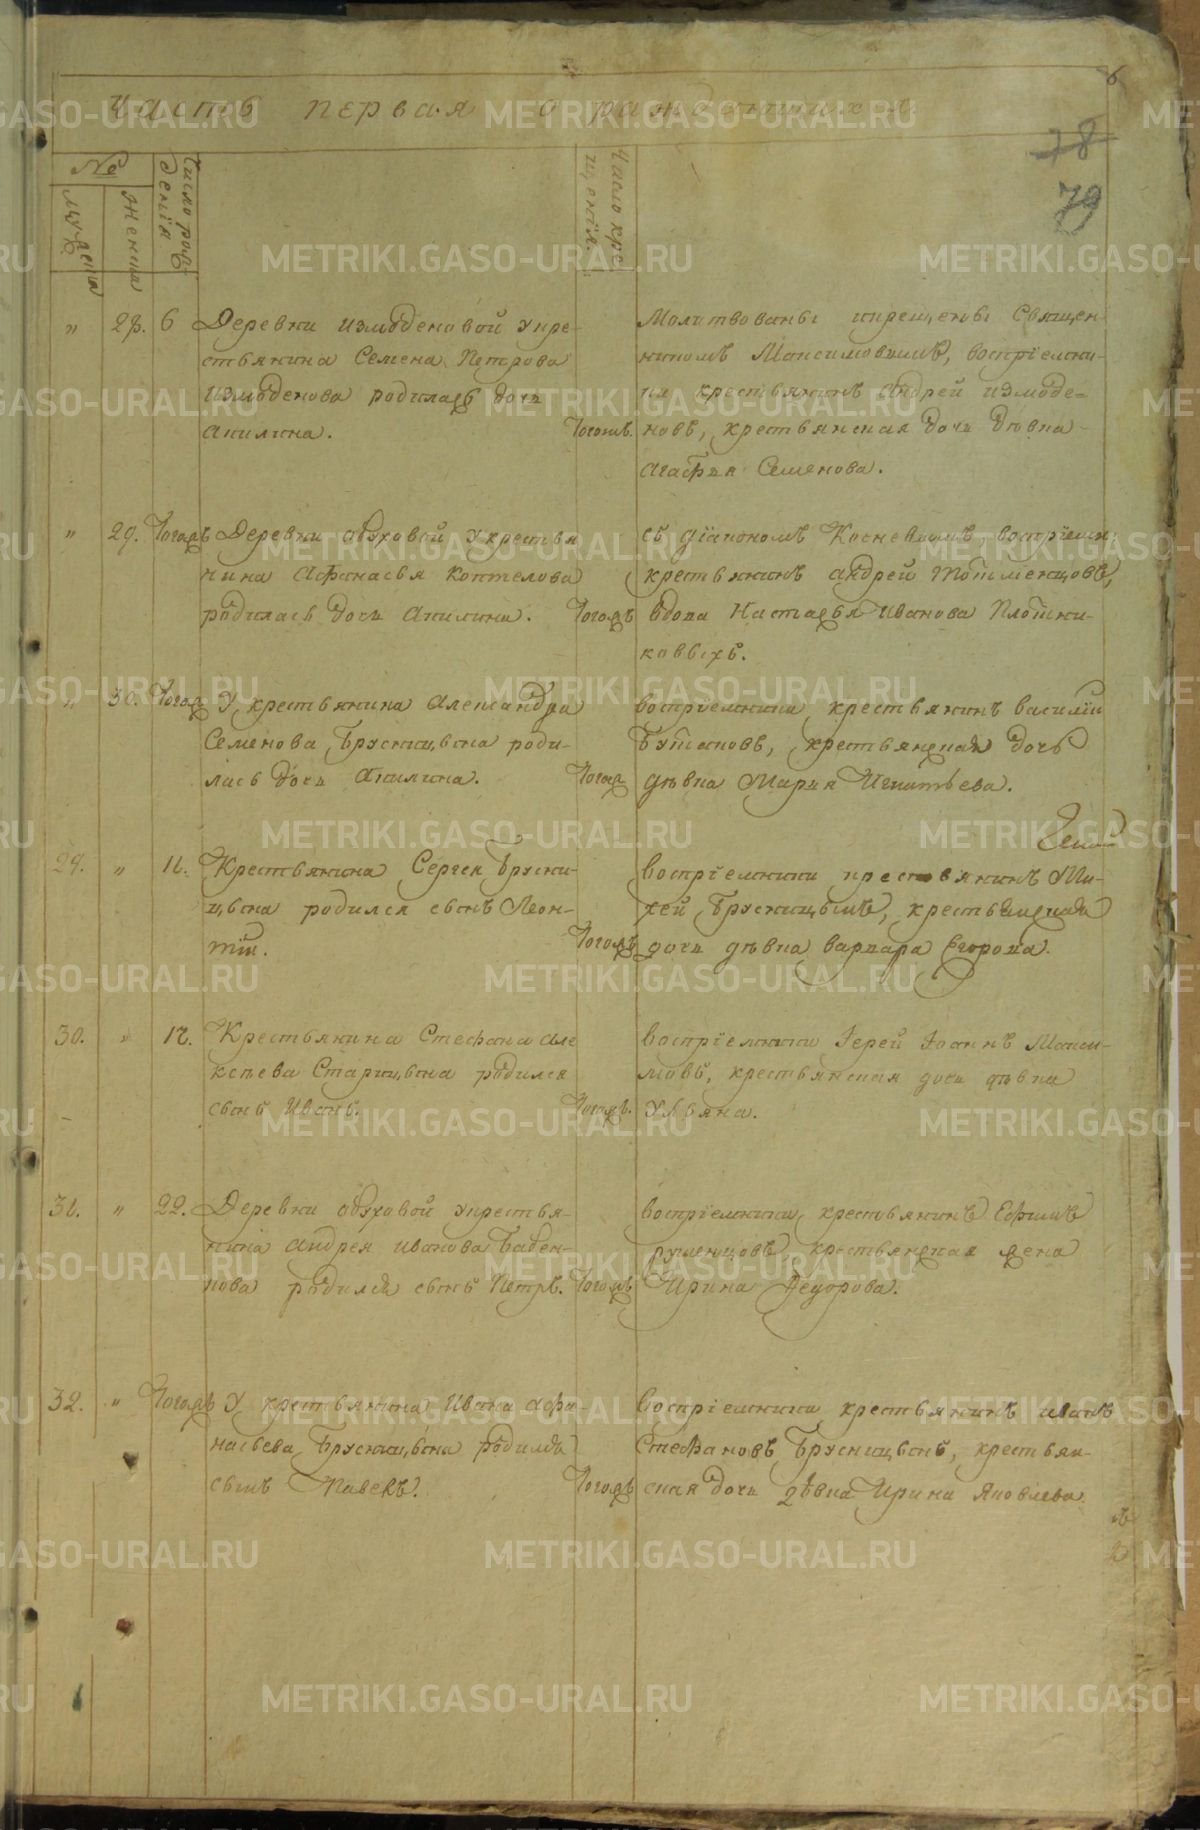 6
Часть первая о раждающихся
78
79
№
мужеска
женска
Число рож-
денія
Число кре-
щенія.
„ 28. 6 Деревни измоденовой укре-
стьянина Семена Петрова
измоденова родилась дочь
Акилина.
Тогожъ.
Молитвованы икрещены Священ-
никомъ Максимовымъ, воспріемни-
ки крестьянинъ андрей измоде-
новъ, крестьянская дочь дѣвка
агафья Семенова.
„ 29. Тогожъ Деревни обуховой укрестья
нина Афанасья Коптелова
родилась дочь Акилина.
Тогожъ
съ діакономъ воспріемн:
крестьянинъ андрей
вдова Настасья Иванова Плотни-
ковыхъ.
„ 30. Тогож У крестьянина Александра
Семенова Брусницына роди-
лась дочь Акилина.
Тогож
воспріемники крестьянинъ василій
крестьянская дочь
дѣвка Марья Игнатьева.
29. „ 11. Крестьянина Сергея Брусни-
цына родился сынъ Леон-
тій.
Тогожъ
воспріемники крестьянинъ Ми-
хей Брусницынъ, крестьянская
дочь дѣвка варвара Егорова.
30. „ 12. Крестьянина Стефана але
ксѣева Старицына родился
сынъ Иванъ.
Тогожъ.
воспріемники Іерей Іоаннъ Макси-
мовъ, крестьянская дочь дѣвка
Ульяна.
31. „ 22. Деревни обуховой укрестья-
нина андрея иванова Бабен-
кова родился сынъ Петръ.
Тогожъ
воспріемники, крестьянинъ Ефимъ
румянцовъ, крестьянская жена
Ирина Федорова.
32. „ Тогожъ У крестьянина Ивана афа-
насьева Брусницына родился
сынъ Павелъ.
Тогожъ
Воспріемники крестьянинъ иванъ
Стефановъ Брусницынъ, крестьян-
ская дочь дѣвка Ирина Яковлева.
METRIKI.GASO-URAL.RU